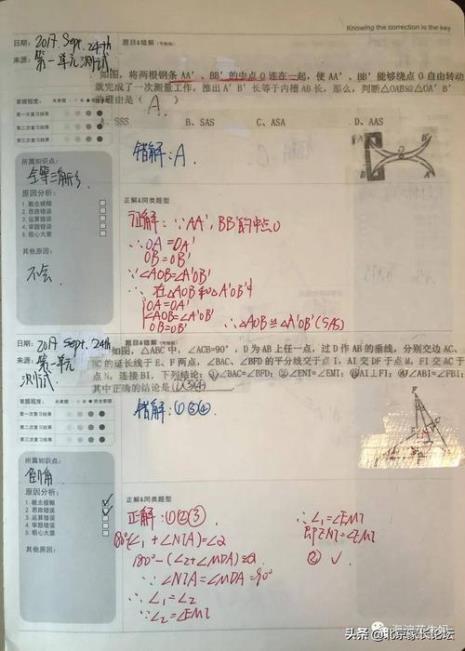 Knowing the correction is the key
日期: 2017. Sept. 24th
来源: 第一单元测试
题目&错解
如图,将两根钢条 AA'、BB' 的中点 O 连在一起,使 AA'、BB' 能够绕点 O 自由转动
就完成了一次测量工作,推出 A'B' 长等于内槽 AB 长,那么,判断△OAB≌△OA'B'
的理由是( A )
A. SSS B. SAS C. ASA D. AAS
错解:A
掌握程度:
第一次复习结果
第二次复习结果
第三次复习结果
所属知识点:
全等三角形
原因分析:
1. 概念模糊
2. 思路错误
3. 运算错误
4. 审题错误
5. 粗心大意
其他原因:
不会
正解&同类题型
证解:∵AA', BB'的中点O
∴OA=OA'
OB=OB'
∵∠AOB=∠A'OB'
∴在△AOB和△A'OB'中
OA=OA'
∠AOB=∠A'OB'
OB=OB'
∴△AOB≌△A'OB'(SAS)
日期: 2017 Sept. 24th
来源: 第一单元测试
题目&错解
如图,△ABC 中,∠ACB=90°,D 为 AB 上任一点,过 D 作 AB 的垂线,分别交边 AC、
BC 的延长线于 E、F 两点,∠BAC、∠BFD 的平分线交于点 I,AI 交 DF 于点 M,FI 交 AC 于
点 N,连接 BI,下列结论:①∠BAC=∠BFD;②∠ENI=∠EMI;③AI⊥FI;④∠ABI=∠FBI;
其中正确的结论是
错解:①③④
掌握程度:
第一次复习结果
第二次复习结果
第三次复习结果
所属知识点:
倒角
原因分析:
1. 概念模糊
2. 思路错误
3. 运算错误
4. 审题错误
5. 粗心大意
其他原因:
正解&同类题型
正解:①②③
∵∠NIA=∠MDA=90°
∴∠1=∠2
∵∠2=∠EMI
∴∠1=∠EMI
即∠ENI=∠EMI
② ✓
头条 @北京家长论坛